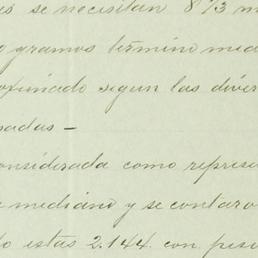 se necesitan 873
gramos término me
ofinado segun las diver
adas —
onsiderada como represe
mediano y se contaro
o estas 2.144 con peso